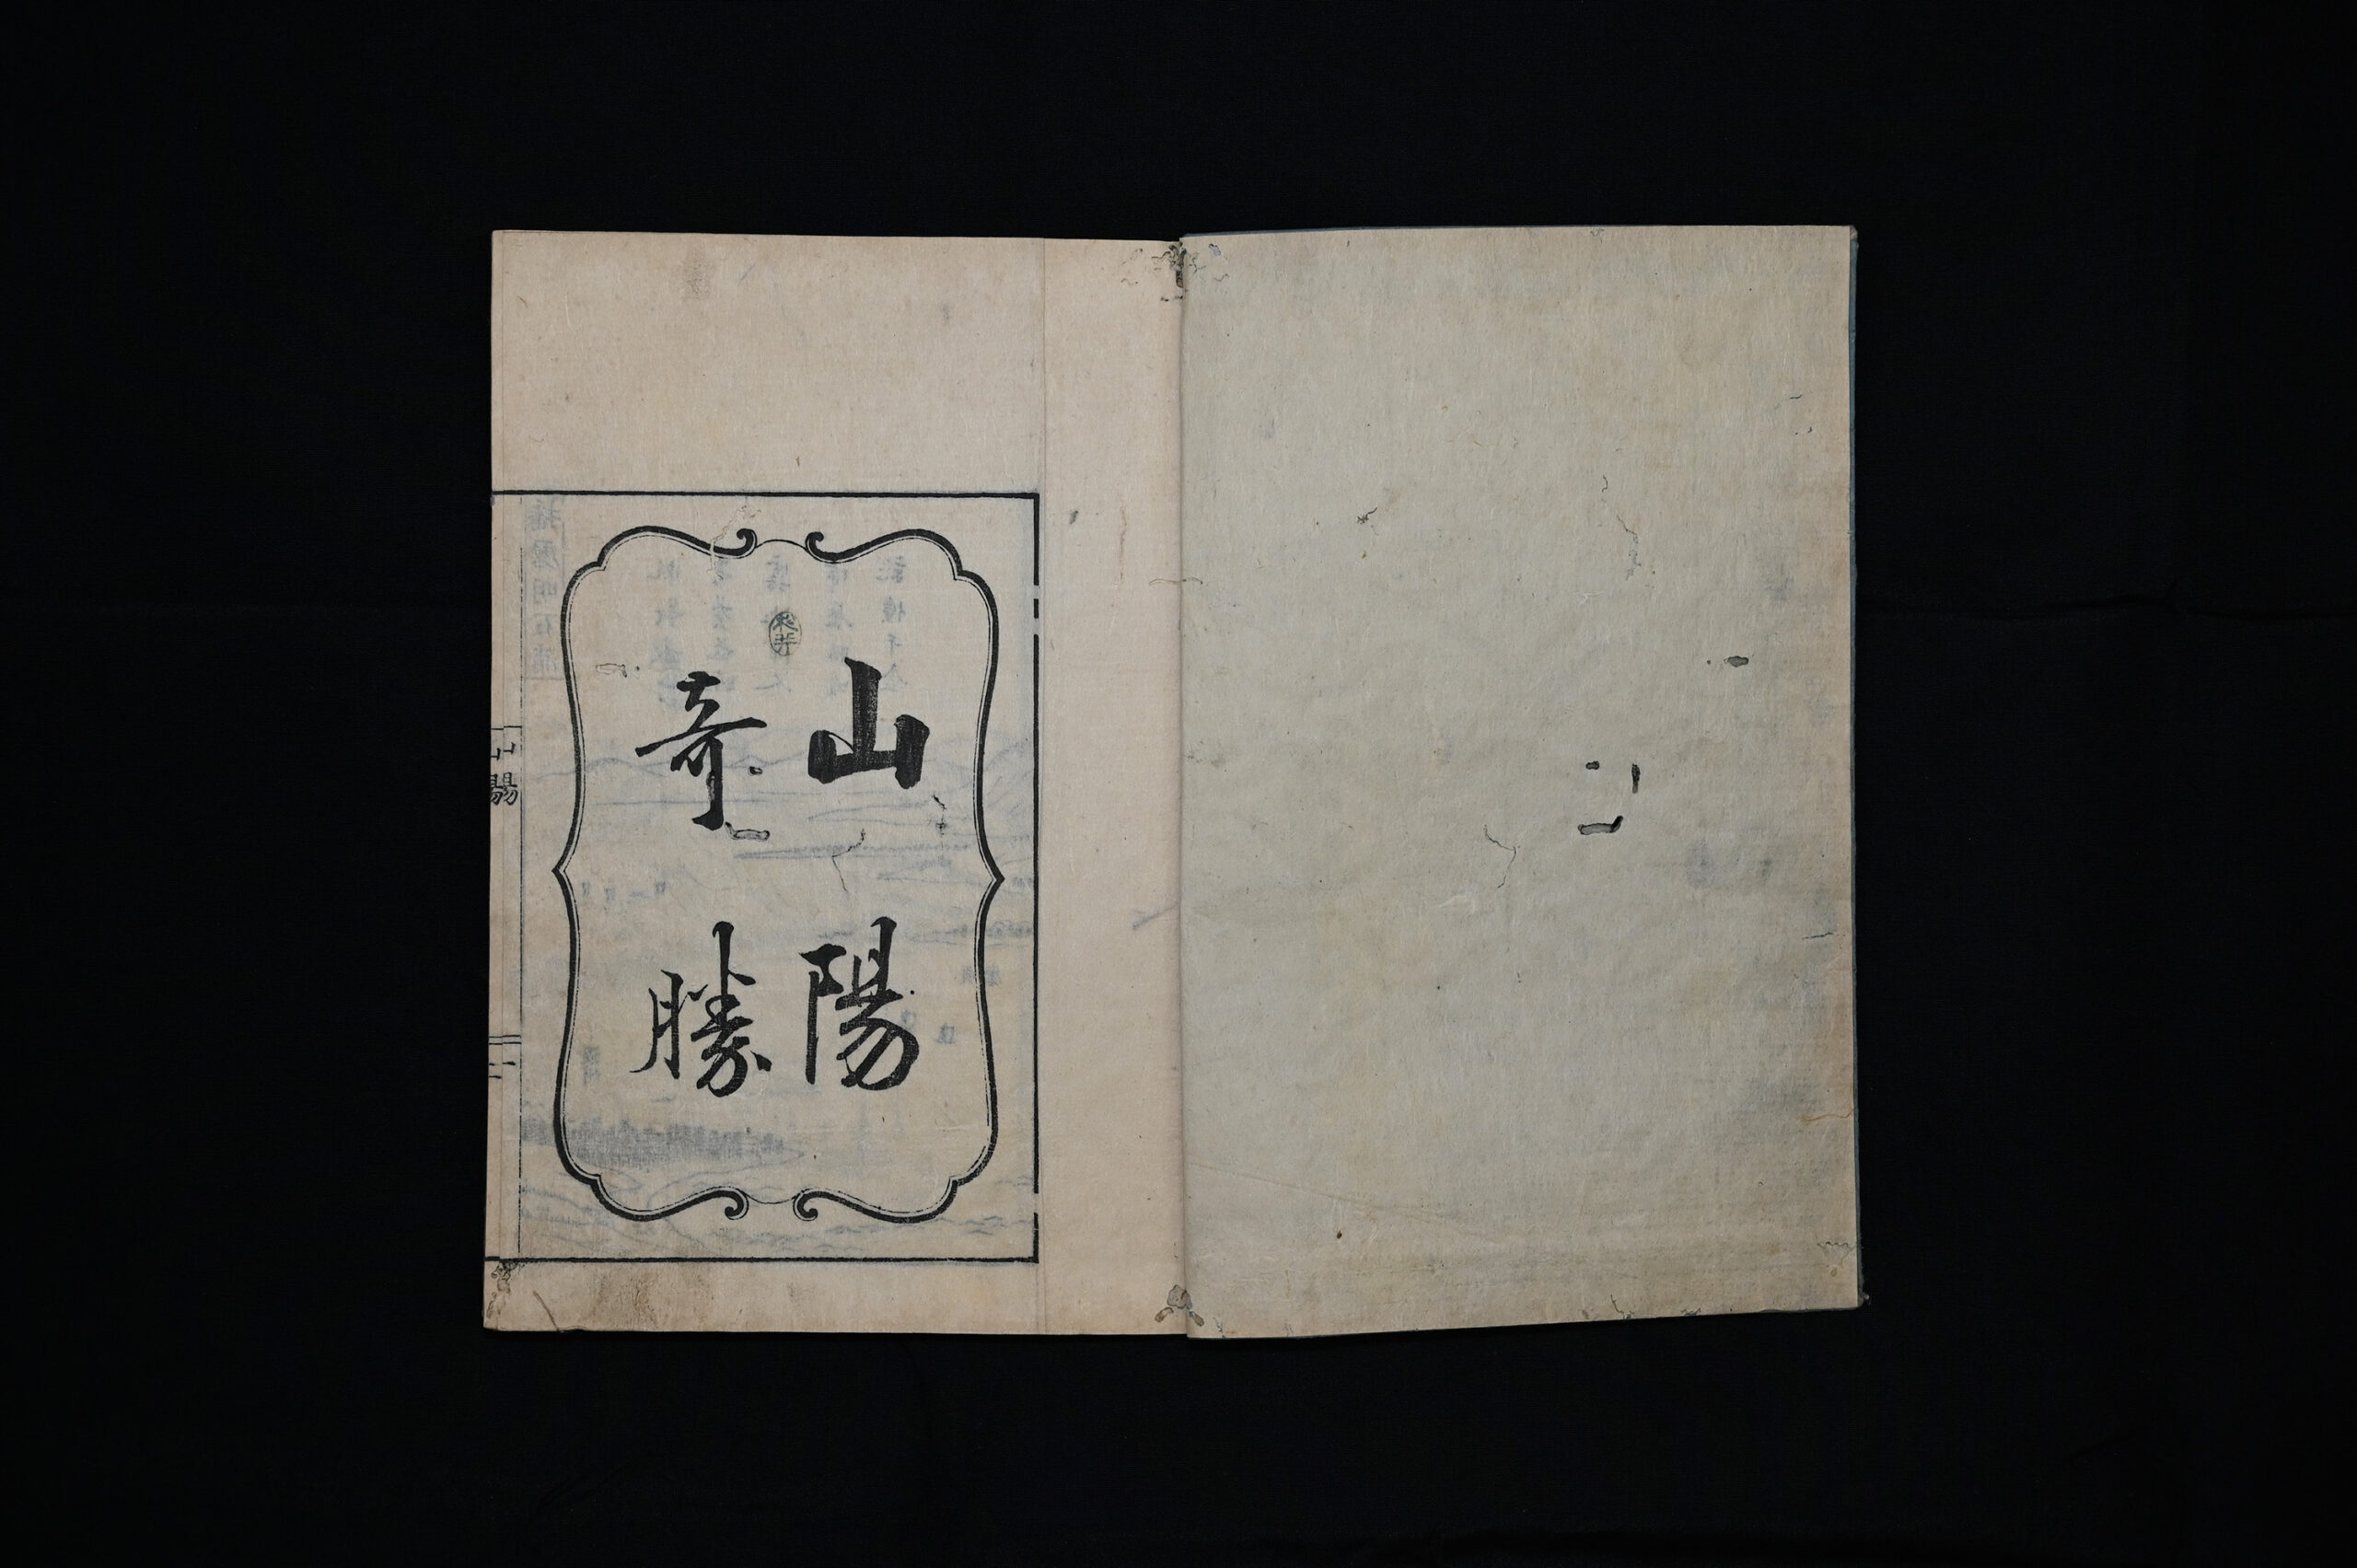 山陽
奇勝
山陽
二